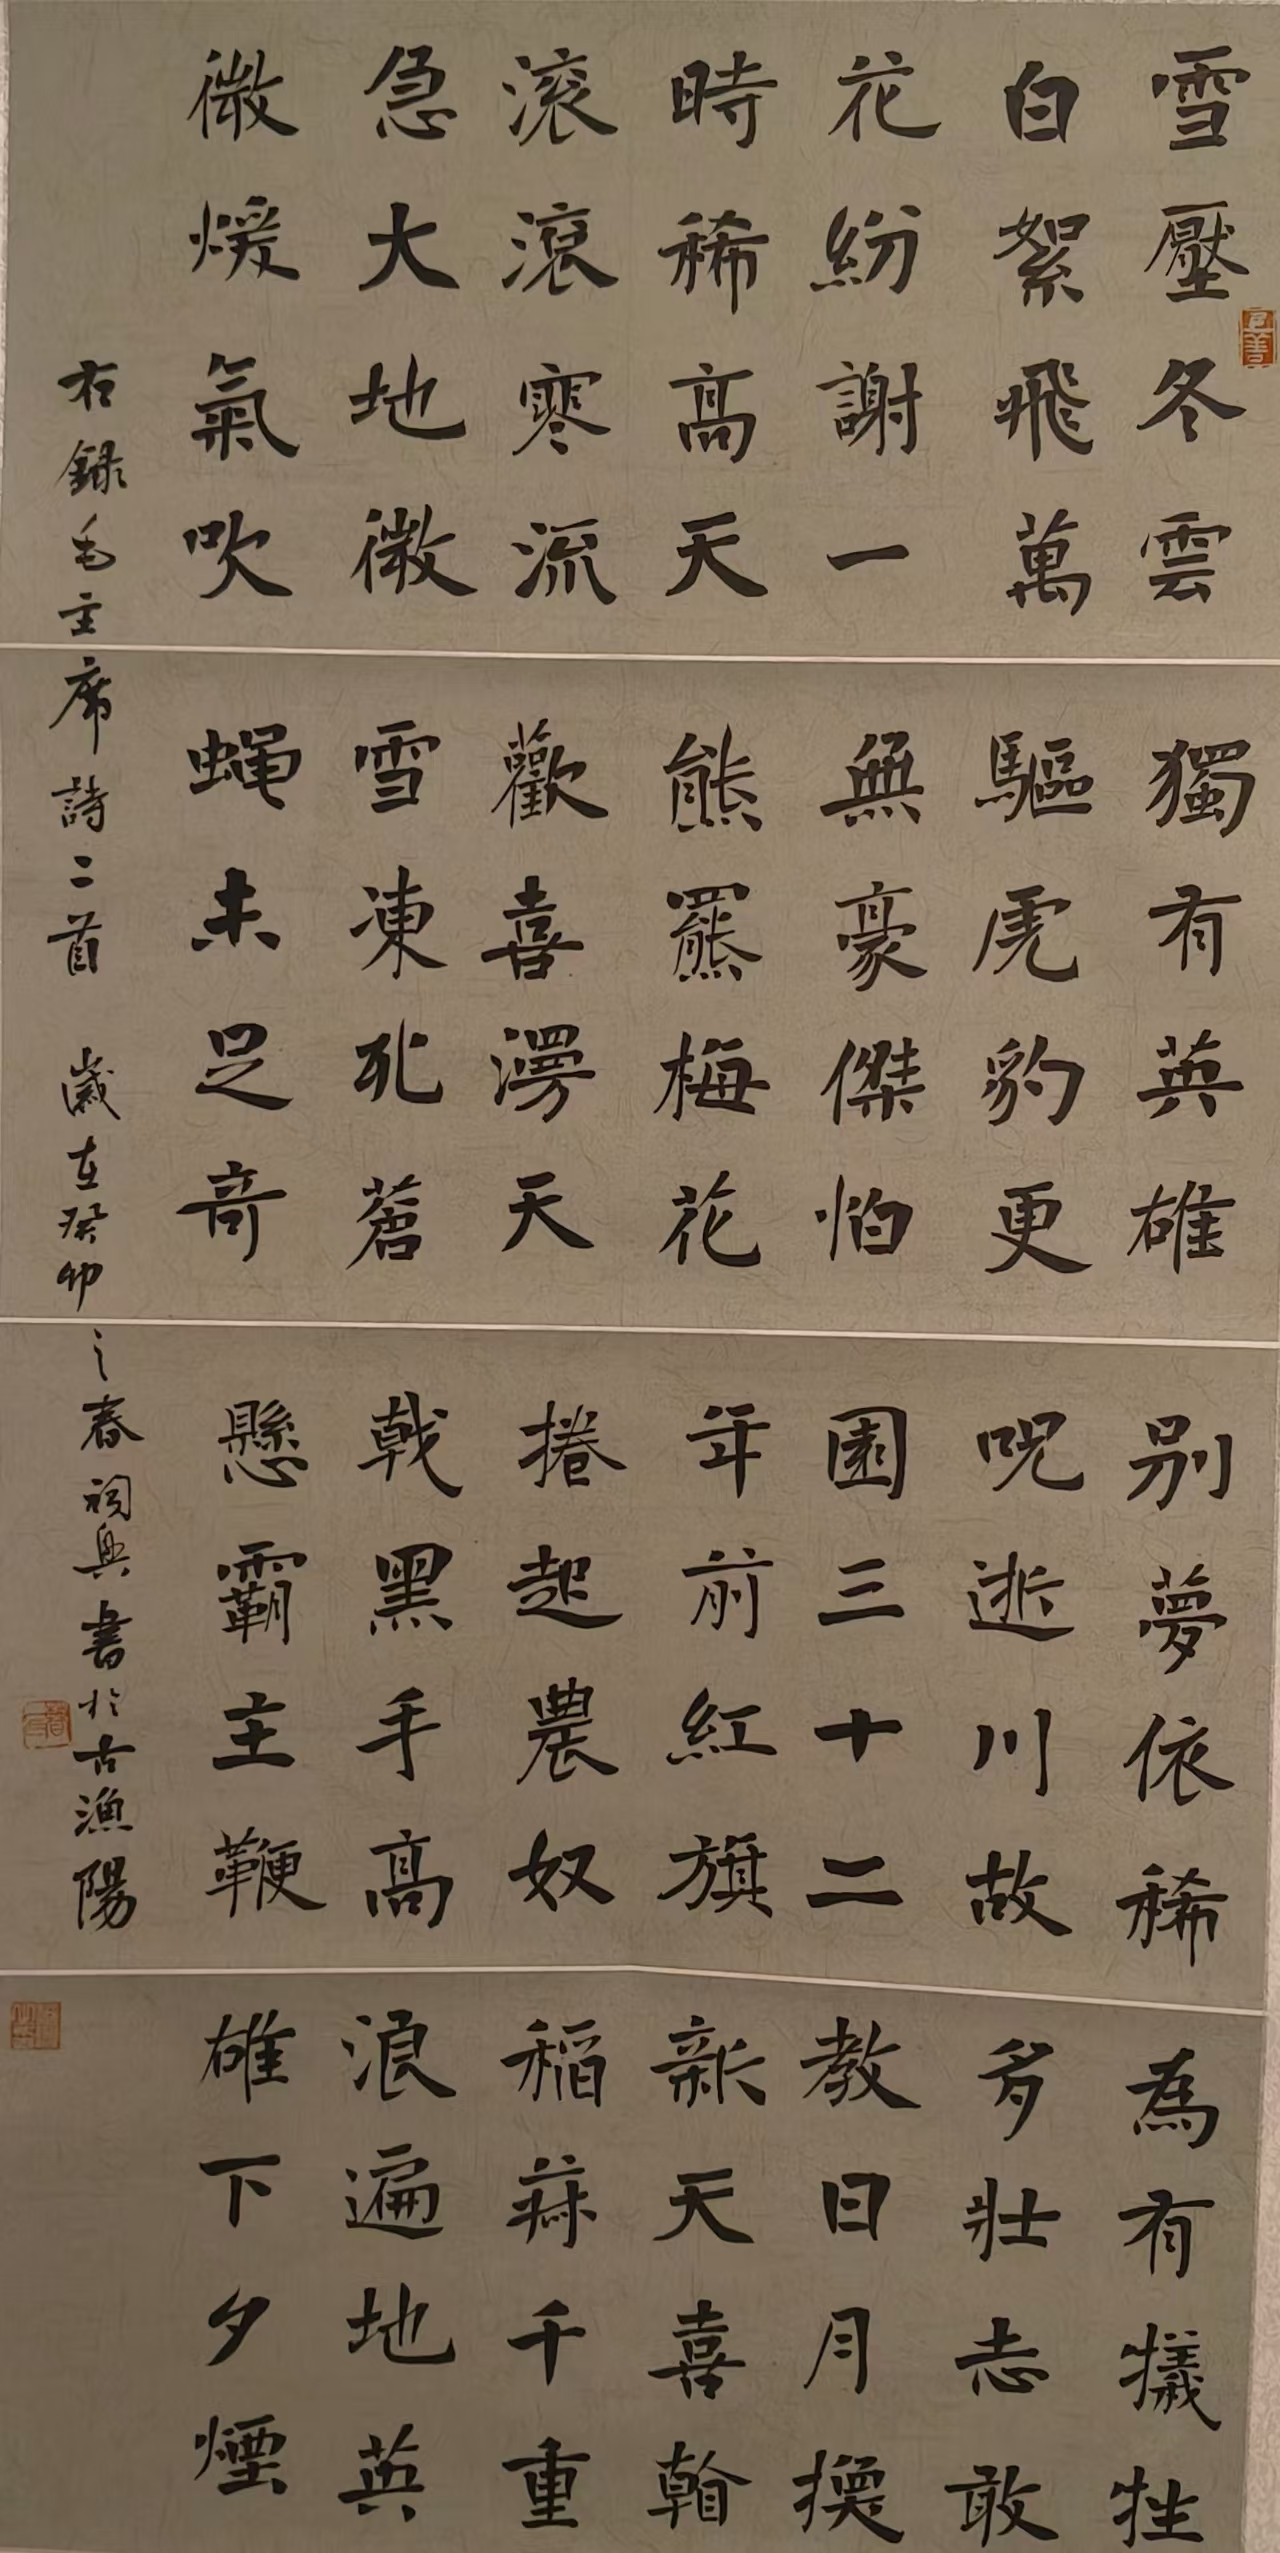 雪壓冬雲
白絮飛萬
花紛謝一
時稀高天
滾滾寒流
急大地微
微煖氣吹
獨有英雄
驅虎豹更
無豪傑怕
熊羆梅花
歡喜漫天
雪凍死蒼
蝇未足奇
别夢依稀
呪逝川故
園三十二
年前紅旗
捲起農奴
戟黑手高
懸霸主鞭
為有犧牲
多壯志敢
教日月換
新天喜看
稻菽千重
浪遍地英
雄下夕煙
右録毛主席詩二首 歲在癸卯之春祠興書於古漁陽